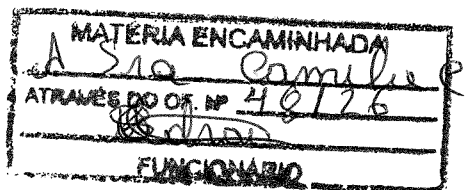 MATÉRIA ENCAMINHADA
A Sra Camila e
ATRAVÉS DO OF. Nº 48/26
FUNCIONÁRIO